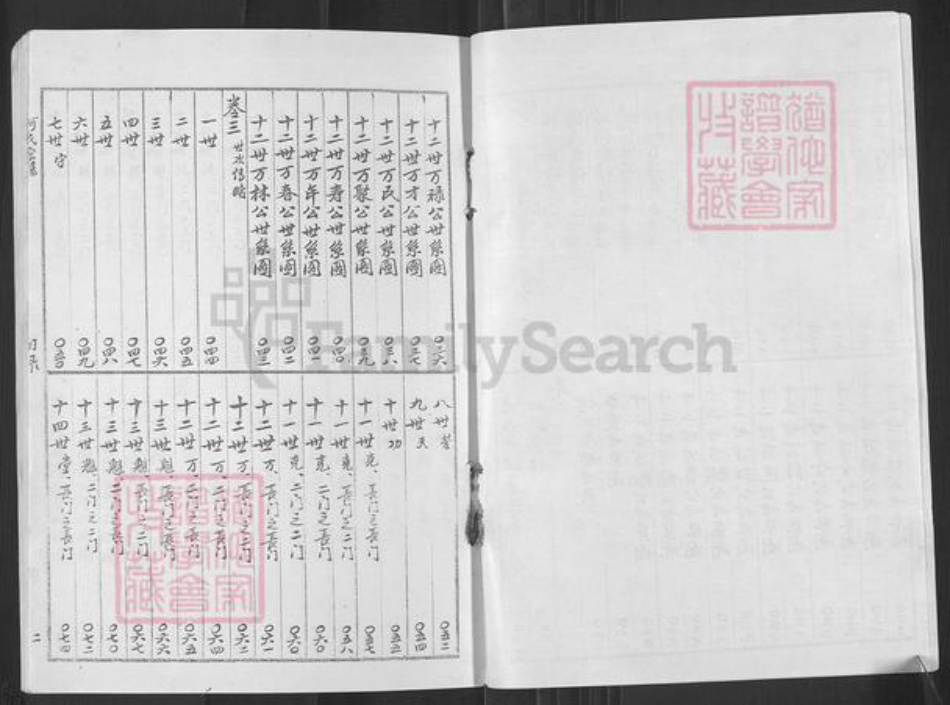 十二世万禄公世系图 〇三六
十二世万才公世系图 〇三七
十二世万民公世系图 〇三八
十二世万聚公世系图 〇三九
十二世万寿公世系图 〇四〇
十二世万年公世系图 〇四一
十二世万春公世系图 〇四二
十二世万林公世系图 〇四三
卷三 世次传略
一世 〇四四
二世 〇四五
三世 〇四六
四世 〇四七
五世 〇四八
六世 〇四九
七世 守 〇五〇
八世 〇五二
九世 天 〇五四
十世 功 〇五五
十一世 克、长门之长门 〇五七
十一世 克、长门之二门 〇五八
十一世 克、二门之长门 〇六〇
十一世 克、二门之二门 〇六〇
十二世 万、长门之长门 〇六一
十二世 万、长门之二门 〇六二
十二世 万、二门之长门 〇六四
十二世 万、二门之二门 〇六五
十三世 长门之长门 〇六六
十三世 长门之二门 〇六七
十三世 二门之长门 〇七〇
十三世 二门之二门 〇七二
十四世 堂、长门之长门 〇七四
目录
二
犹他家
谱学会
收藏
犹他家
谱学会
收藏
FamilySearch